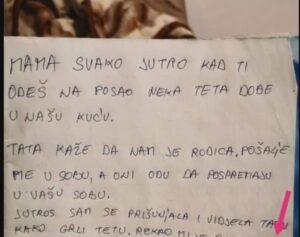 MAMA SVAKO JUTRO KAD TI
ODEŠ NA POSAO NEKA TETA DOĐE
U NAŠU KUĆU.
TATA KAŽE DA NAM JE RODICA, POŠALJE
ME U SOBU, A ONI ODU DA POSPREMAJU
U VAŠU SOBU.
JUTROS SAM SE PRIŠUNJALA I VIDJELA TATU
KAKO GRLI TETU. REKAO MI JE